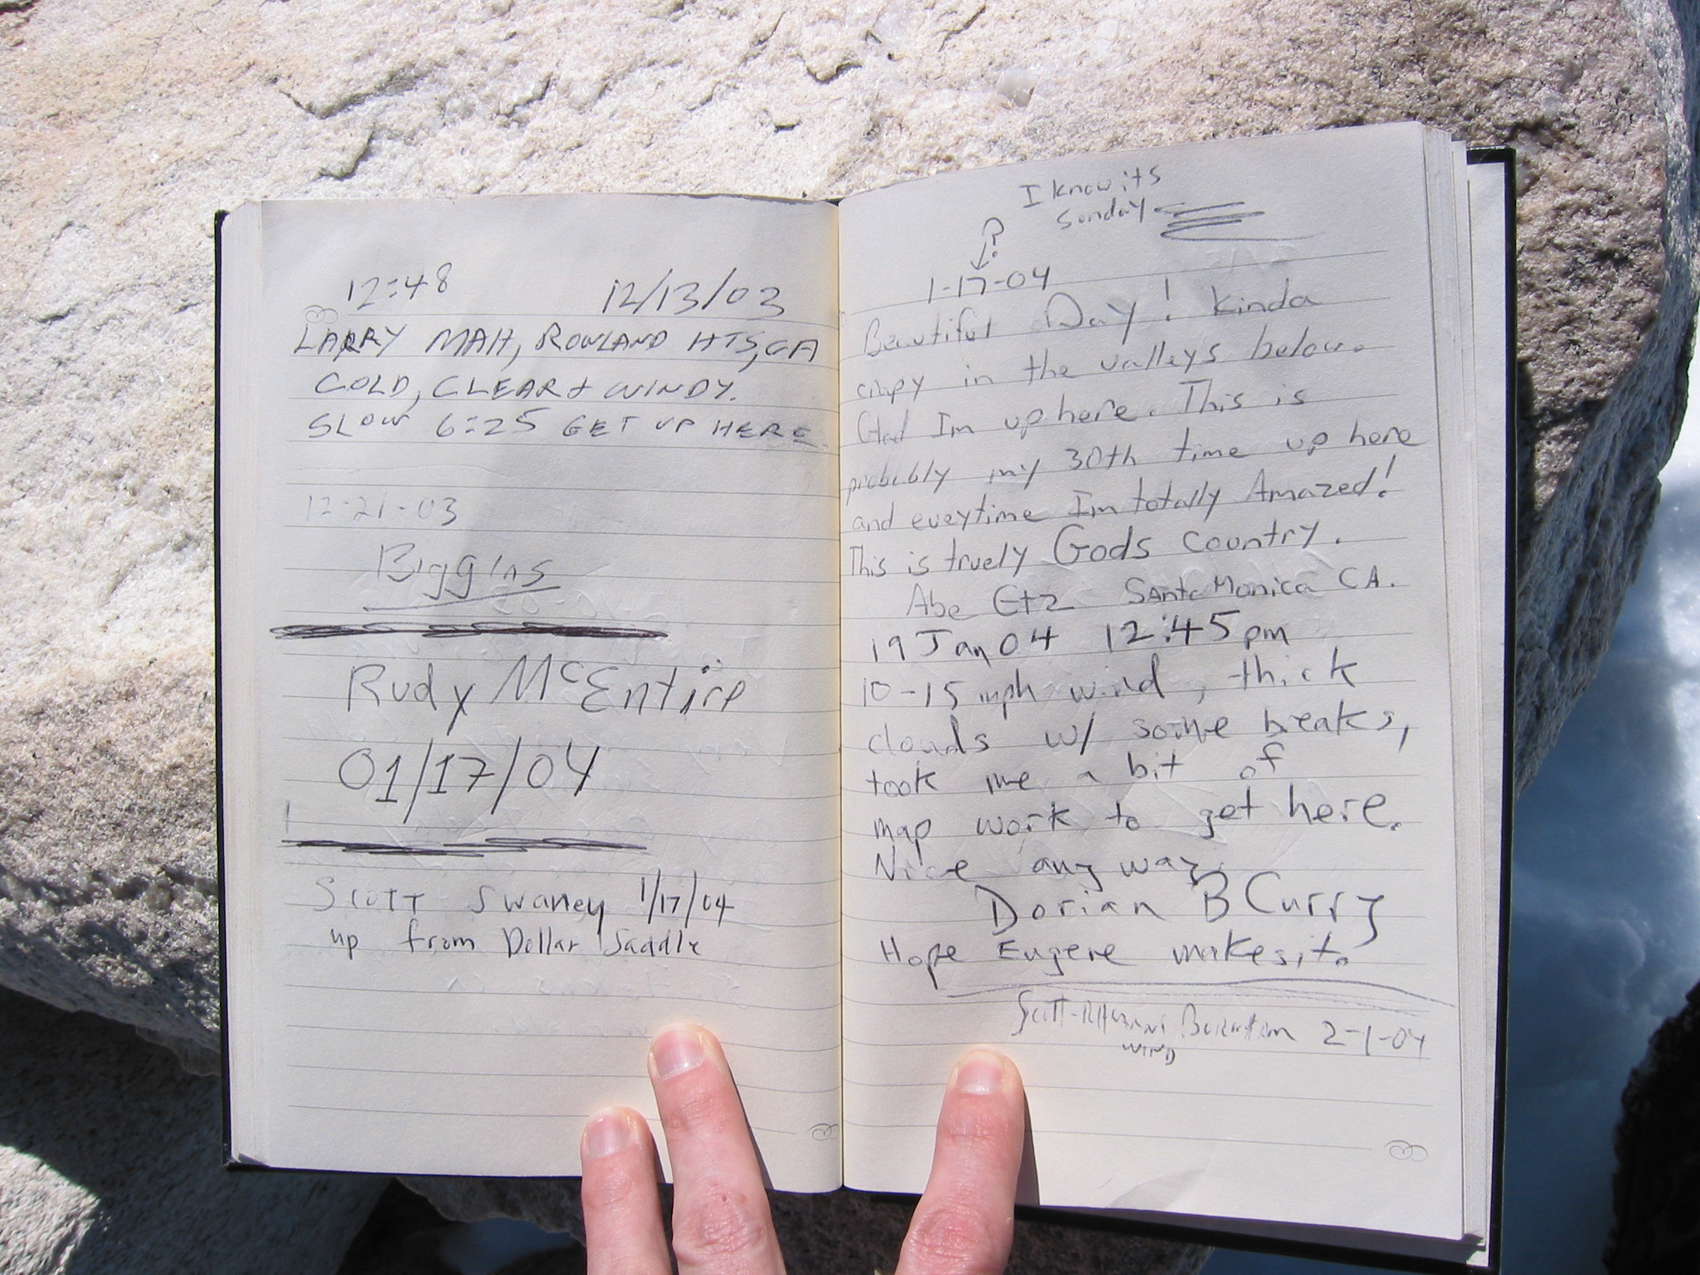 12:48 12/13/03
LARRY MAH, ROWLAND HTS, CA
COLD, CLEAR & WINDY.
SLOW 6:25 GET UP HERE.
12-21-03
Biggins
Rudy McEntire
01/17/04
Scott Swaney 1/17/04
up from Dollar Saddle
I know its
Sunday
?
1-17-04
Beautiful Day! Kinda
in the valleys below.
Glad Im up here. This is
probably my 30th time up here
and eveytime Im totally Amazed!
This is truely Gods Country.
Abe Etz Santa Monica CA.
19 Jan 04 12:45pm
10-15 mph wind, thick
clouds w/ some breaks,
took me a bit of
map work to get here.
Nice any way.
Dorian B Curry
Hope Eugene makes it.
Scott 2-1-04
WIND